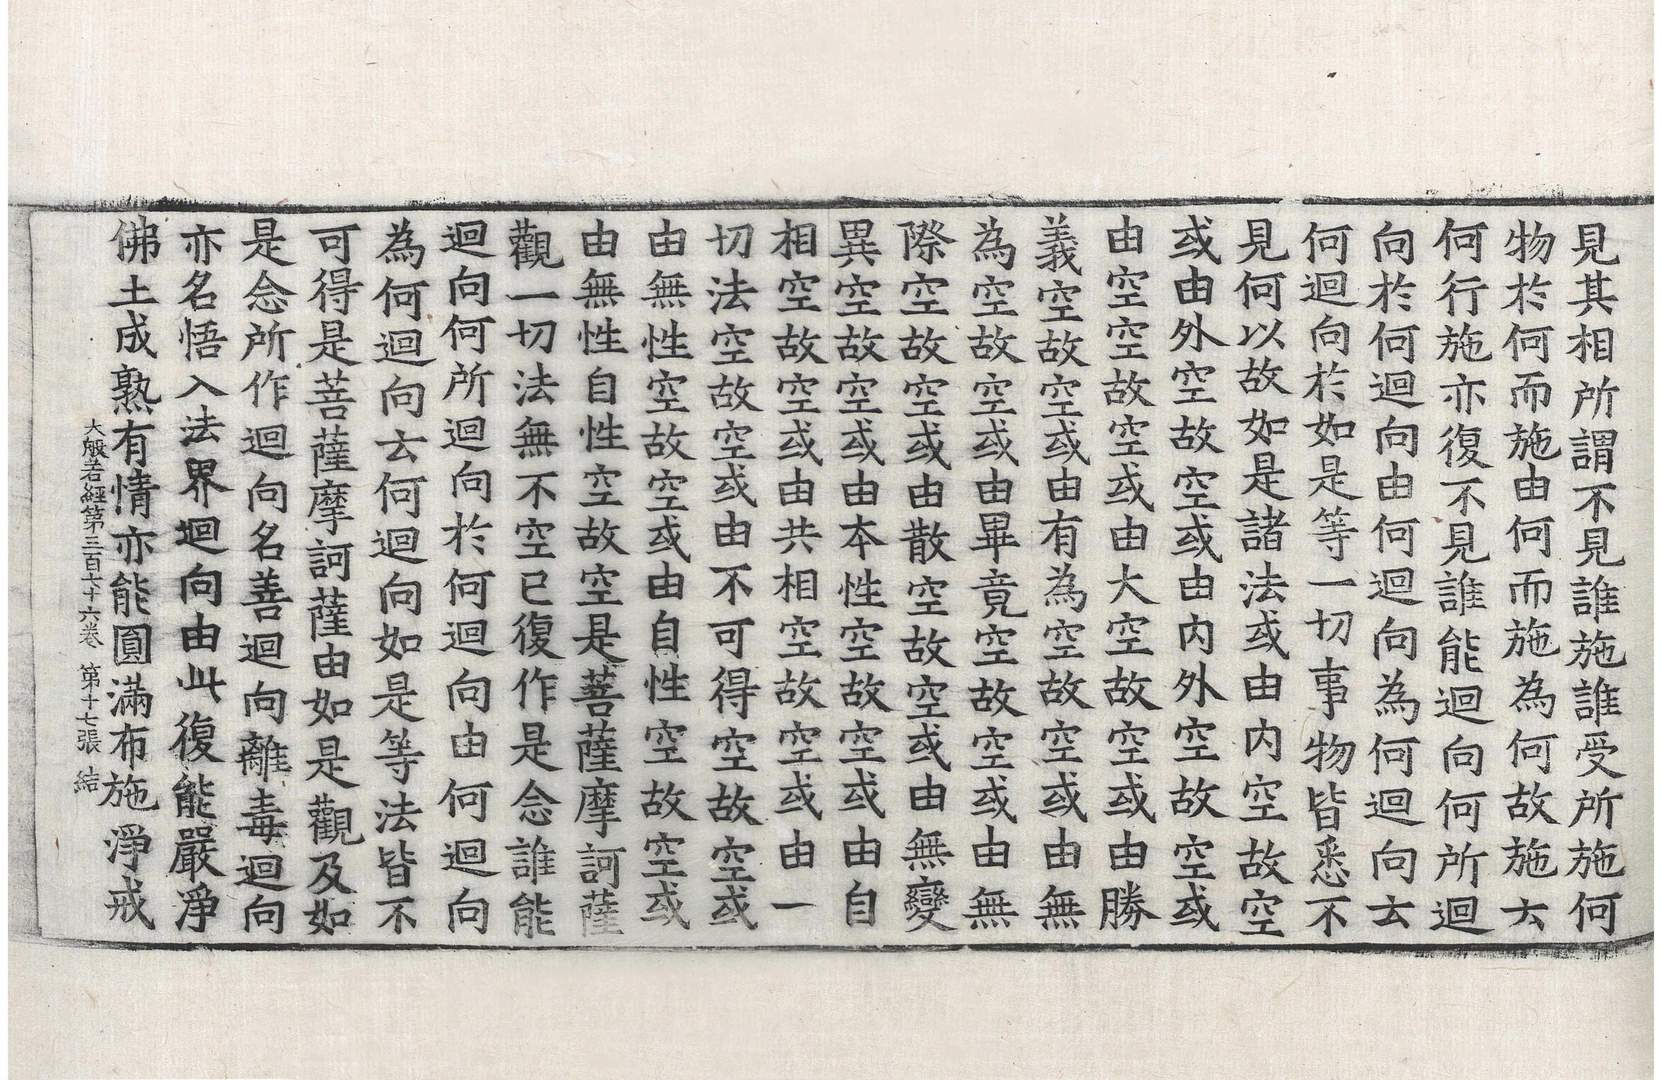 見其相所謂不見誰施誰受所施何
物於何而施由何而施為何故施云
何行施亦復不見誰能迴向何所迴
向於何迴向由何迴向為何迴向云
何迴向於如是等一切事物皆悉不
見何以故如是諸法或由内空故空
或由外空故空或由内外空故空或
由空空故空或由大空故空或由勝
義空故空或由有為空故空或由無
為空故空或由畢竟空故空或由無
際空故空或由散空故空或由無變
異空故空或由本性空故空或由自
相空故空或由共相空故空或由一
切法空故空或由不可得空故空或
由無性空故空或由自性空故空或
由無性自性空故空是菩薩摩訶薩
觀一切法無不空已復作是念誰能
迴向何所迴向於何迴向由何迴向
為何迴向云何迴向如是等法皆不
可得是菩薩摩訶薩由如是觀及如
是念所作迴向名善迴向離毒迴向
亦名悟入法界迴向由此復能嚴淨
佛土成熟有情亦能圓滿布施淨戒
大般若經第三百六十六卷 第十七張 結